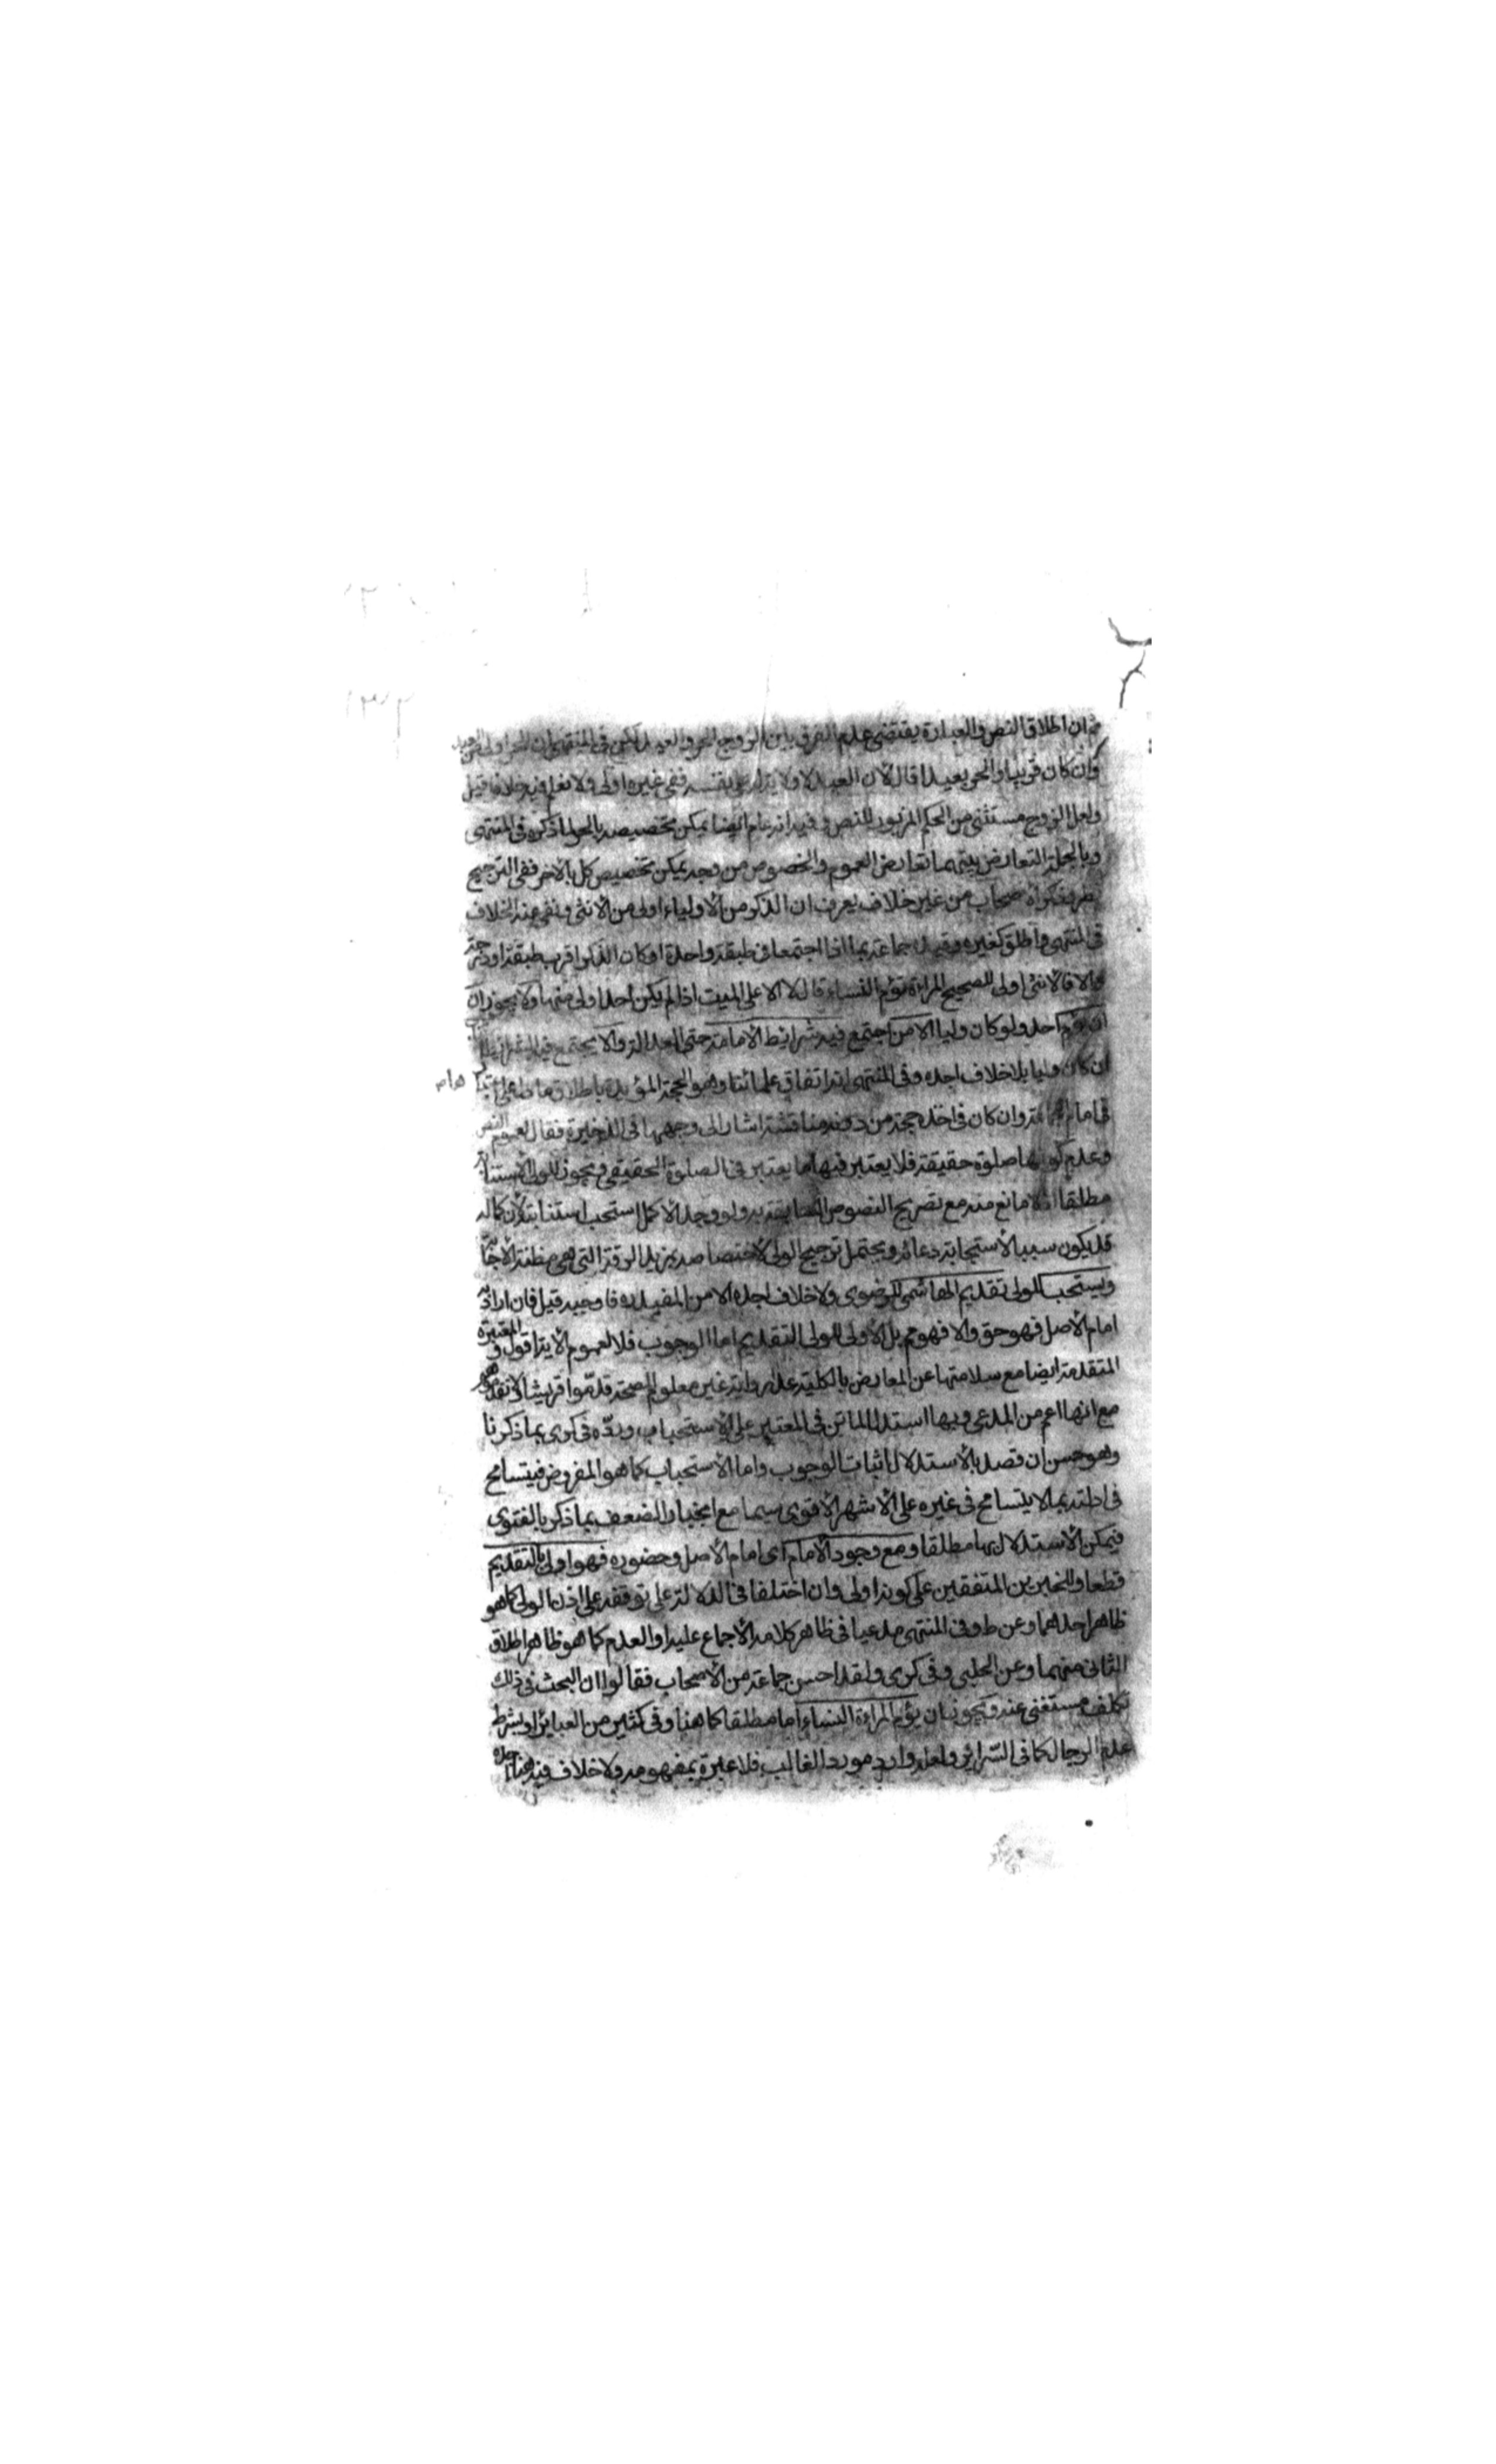 ثم ان اطلاق النص والعبارة يقتضى عدم الفرق بين الزوج الحر والعبد لكن فى المنتهى ان الحر اولى من العبد
وان كان قريبا والحر بعيدا قال لان العبد لا ولاية له على نفسه ففى غيره اولى ولا نعلم فيه خلافا قيل
ولعل الزوج مستثنى من الحكم المزبور للنص وفيه انه عام ايضا يمكن تخصيصه بالحر لما ذكره فى المنتهى
وبالجملة التعارض بينهما تعارض العموم والخصوص من وجه يمكن تخصيص كل بالاخر ففى الترجيح
نظر وذكر الاصحاب من غير خلاف يعرف ان الذكر من الاولياء اولى من الانثى ونفى عنه الخلاف
فى المنتهى واطلق كغيره وقيده جماعة بما اذا اجتمعا فى طبقة واحدة او كان الذكر اقرب طبقة او درجة
والا فالانثى اولى للصحيح المراة تؤم النساء قال لا الا على الميت اذا لم يكن احد اولى منها ولا يجوز ان
ان يؤم احد ولو كان وليا الا من اجتمع فيه شرايط الامامة حتى العدالة والا يجتمع فيه الشرايط
ان كان وليا بلا خلاف اجده وفى المنتهى انه اتفاق علمائنا وهو الحجة المؤيدة باطلاق ما دل على
فى امام الجماعة وان كان فى اخذه حجة من دونه مناقشة اشار الى وجهها فى الذخيرة فقال لعموم النص
وعدم كونها صلوة حقيقة فلا يعتبر فيها ما يعتبر فى الصلوة الحقيقى ويجوز للولى الاستنابة
مطلقا اذ لا مانع منه مع تصريح النصوص السابقة به ولو وجد الاكمل استحب استنابته لان كماله
قد يكون سببا لاستجابة دعائه ويحتمل ترجيح الولى لاختصاصه بمزيد الرقة التى هى مظنة الاجابة
ويستحب للولى تقديم الهاشمى للرضوى ولا خلاف اجده الا من المفيد ره فاوجبه قيل فان اراد به
امام الاصل فهو حق والا فهو م بل الاولى للولى التقديم اما الوجوب فلا لعموم الاية اقول والمعتبرة
المتقدمة ايضا مع سلامتها عن المعارض بالكلية عدا رواية غير معلومة الصحة قدموا قريشا ولا تقدموهم
مع انها اعم من المدعى وبها استدل الماتن فى المعتبر على الاستحباب ورده فى كرى بما ذكرنا
وهو حسن ان قصد بالاستدلال اثبات الوجوب واما الاستحباب كما هو المفروض فيتسامح
فى ادلته بما لا يتسامح فى غيره على الاشهر الاقوى سيما مع انجبار الضعف بما ذكر بالفتوى
فيمكن الاستدلال بها مطلقا ومع وجود الامام اى امام الاصل وحضوره فهو اولى بالتقديم
قطعا وللخبرين المتفقين على كونه اولى وان اختلفا فى الدلالة على توقفه على اذن الولى كما هو
ظاهر احدهما وعن ط وفى المنتهى مدعيا فى ظاهر كلامه الاجماع عليه او العدم كما هو ظاهر اطلاق
الثانى منهما وعن الحلبى وفى كرى ولقد احسن جماعة من الاصحاب فقالوا ان البحث فى ذلك
تكلف مستغنى عنه ويجوز ان يؤم المراءة النساء اما مطلقا كما هنا وفى كثير من العبائر او بشرط
عدم الرجال كما فى السرائر ولعله وارد مورد الغالب فلا عبرة بمفهومه ولا خلاف فيه هنا اجده